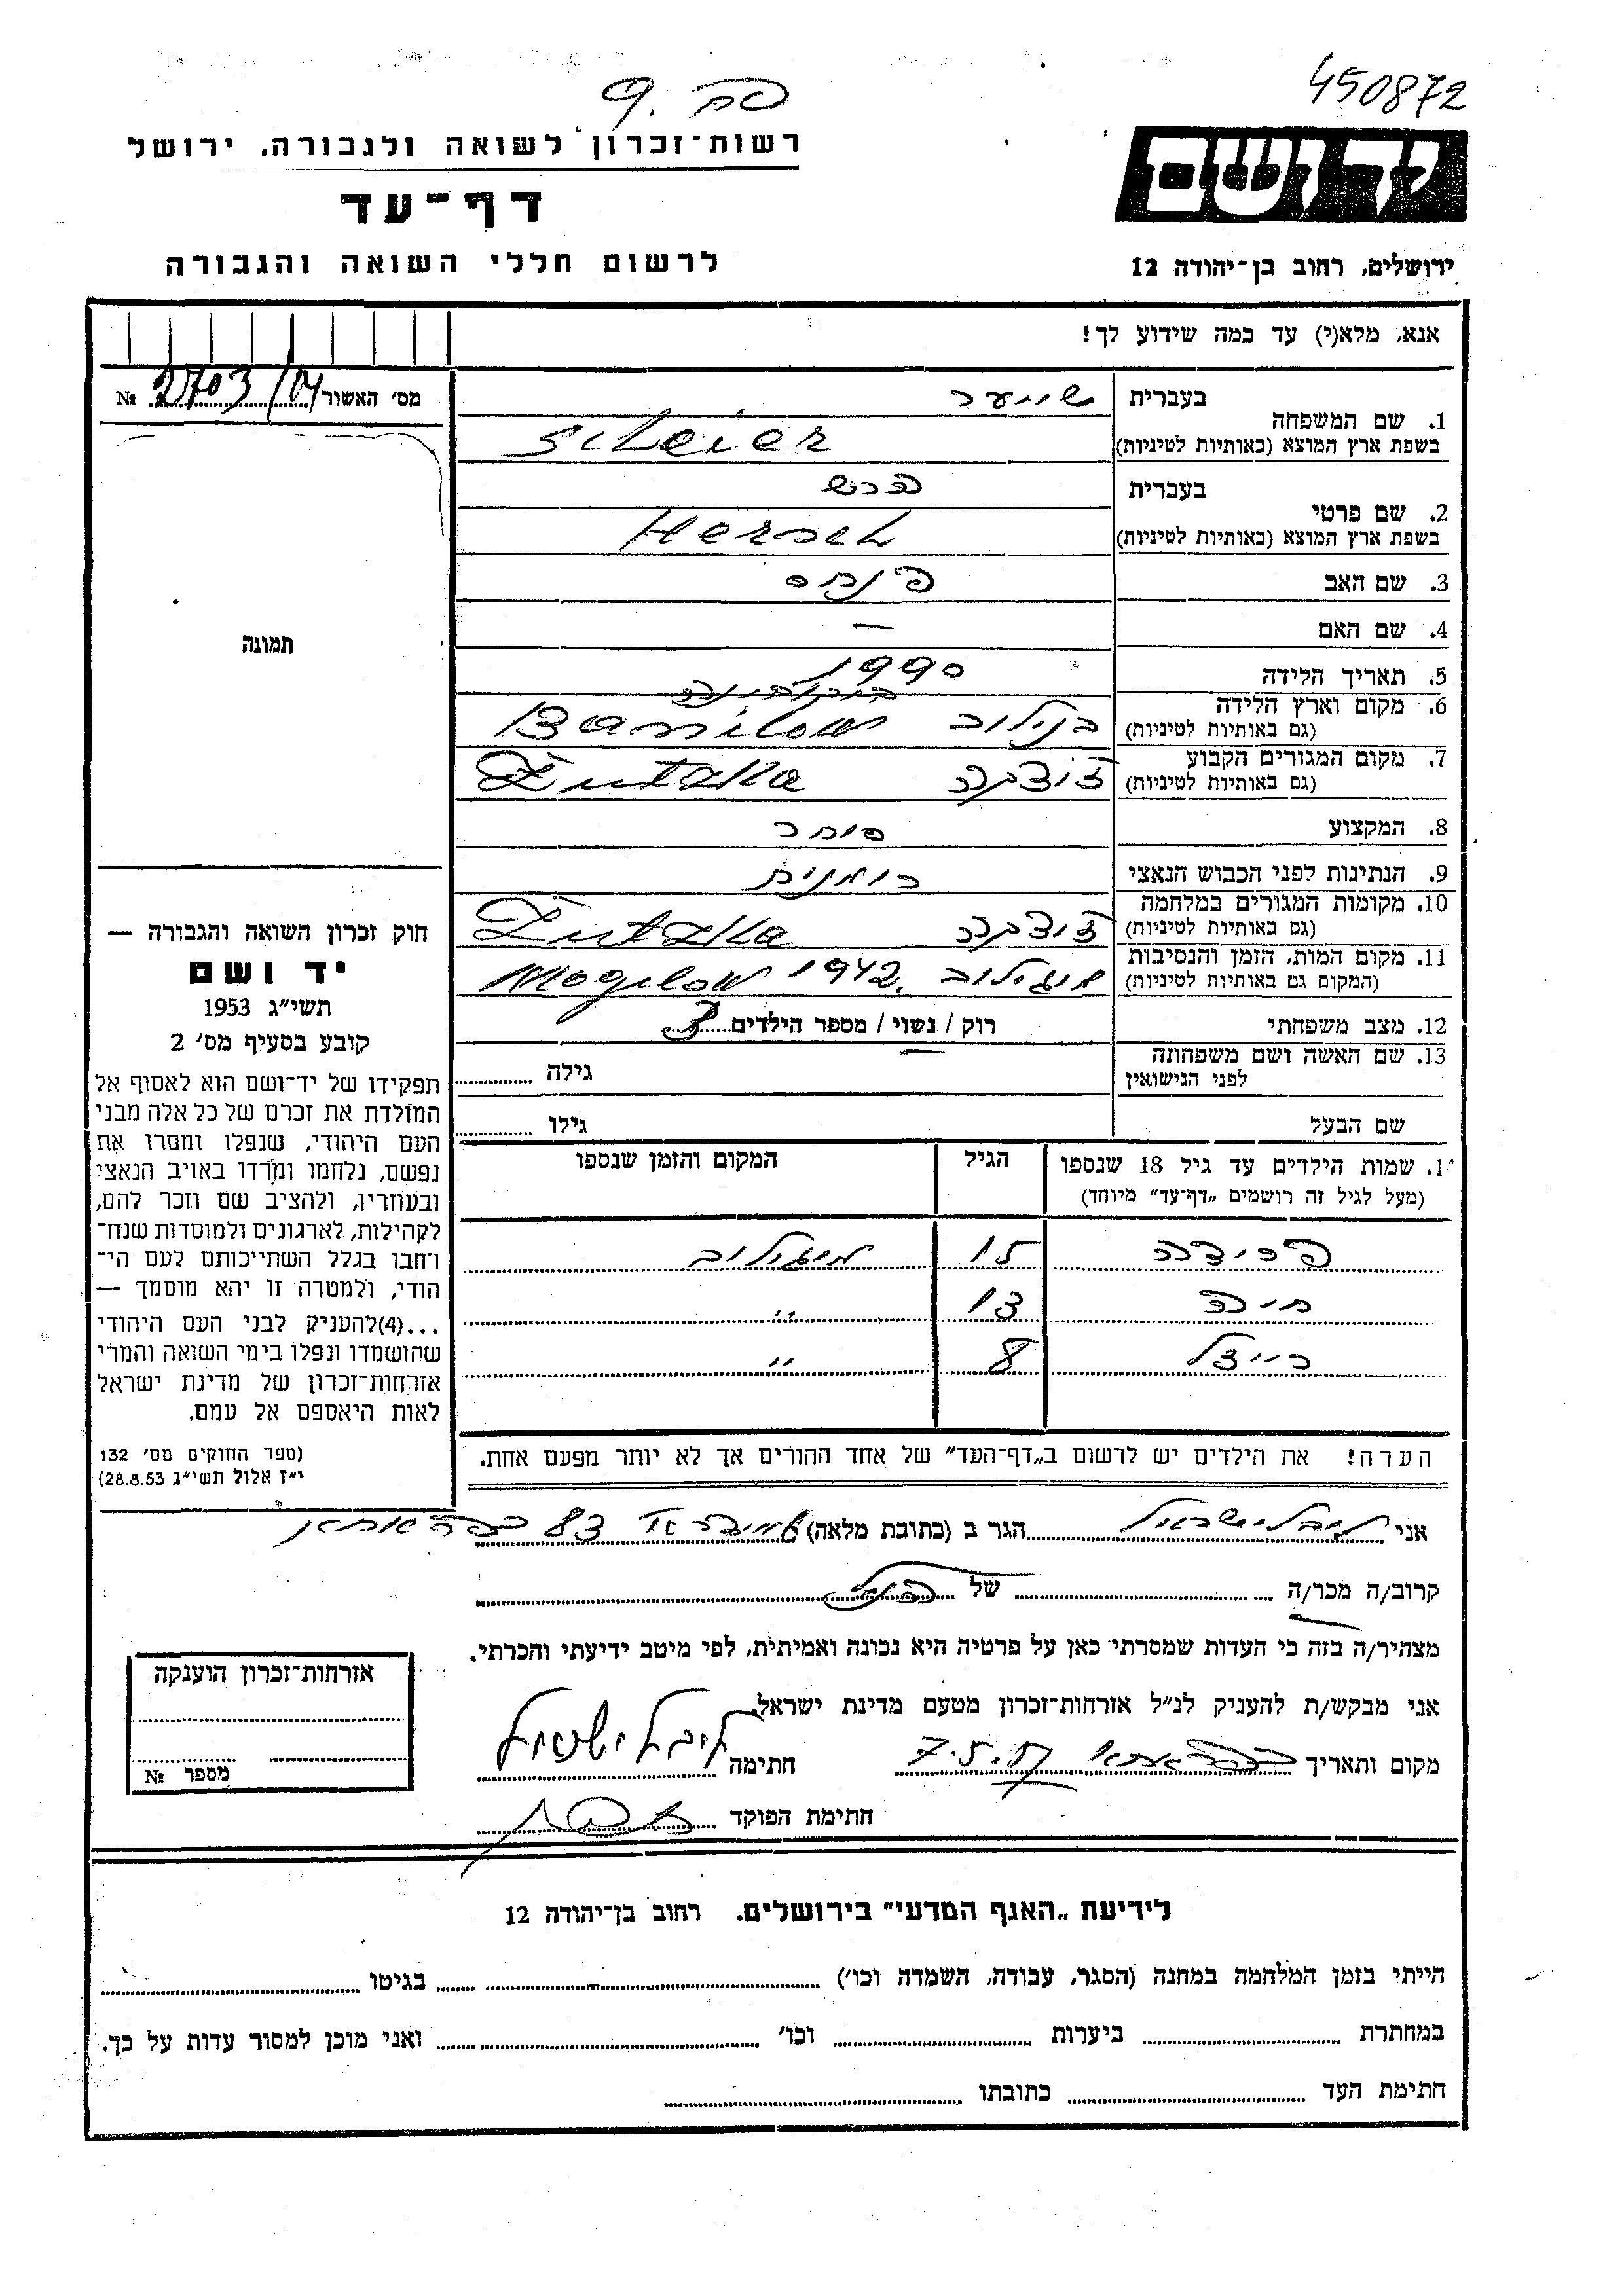 450872
פה. 9
רשות־זכרון לשואה ולגבורה, ירושל
יד ושם
דף־עד
ירושלים, רחוב בן־יהודה 12
לרשום חללי השואה והגבורה
אנא, מלא(י) עד כמה שידוע לך!
מס׳ האשור 2703/14 №
תמונה
חוק זכרון השואה והגבורה —
יד ושם
תשי״ג 1953
קובע בסעיף מס׳ 2
תפקידו של יד־ושם הוא לאסוף אל
המולדת את זכרם של כל אלה מבני
העם היהודי, שנפלו ומסרו את
נפשם, נלחמו ומרדו באויב הנאצי
ובעוזריו, ולהציב שם וזכר להם,
לקהילות, לארגונים ולמוסדות שנח־
רחבו בגלל השתייכותם לעם הי־
הודי, ולמטרה זו יהא מוסמך —
...(4)להעניק לבני העם היהודי
שהושמדו ונפלו בימי השואה והמרי
אזרחות־זכרון של מדינת ישראל
לאות היאספם אל עמם.
(ספר החוקים מס׳ 132
י״ז אלול תשי״ג 28.8.53)
בעברית שייער
1. שם המשפחה
בשפת ארץ המוצא (באותיות לטיניות) Scheier
בעברית הרש
2. שם פרטי
בשפת ארץ המוצא (באותיות לטיניות) Hersch
3. שם האב פנחס
4. שם האם —
5. תאריך הלידה
בוקובינה
6. מקום וארץ הלידה בנילוב Banilow
(גם באותיות לטיניות)
7. מקום המגורים הקבוע
(גם באותיות לטיניות)
8. המקצוע סוחר
9. הנתינות לפני הכבוש הנאצי רומנית
10. מקומות המגורים במלחמה
(גם באותיות לטיניות)
11. מקום המות, הזמן והנסיבות מוגילוב Mogilow 1942.
(המקום גם באותיות לטיניות)
12. מצב משפחתי רוק / נשוי / מספר הילדים 3
13. שם האשה ושם משפחתה גילה
לפני הנישואין
שם הבעל גילו
1. שמות הילדים עד גיל 18 שנספו הגיל המקום והזמן שנספו
(מעל לגיל זה רושמים „דף־עד״ מיוחד)
פרידה 15 מוגילוב
חיה 13 ״
רייזל 8 ״
הערה! את הילדים יש לרשום ב„דף־העד״ של אחד ההורים אך לא יותר מפעם אחת.
אני ליבל ישראל הגר ב (כתובת מלאה) 83 כפר אתא
קרוב/ה מכר/ה של הנ״ל
מצהיר/ה בזה כי העדות שמסרתי כאן על פרטיה היא נכונה ואמיתית, לפי מיטב ידיעתי והכרתי.
אני מבקש/ת להעניק לנ״ל אזרחות־זכרון מטעם מדינת ישראל.
מקום ותאריך כפר אתא חתימה ליבל ישראל
חתימת הפוקד
אזרחות־זכרון הוענקה
מספר №
לידיעת „האגף המדעי״ בירושלים. רחוב בן־יהודה 12
הייתי בזמן המלחמה במחנה (הסגר, עבודה, השמדה וכו׳) בגיטו
במחתרת ביערות וכו׳ ואני מוכן למסור עדות על כך.
חתימת העד כתובתו